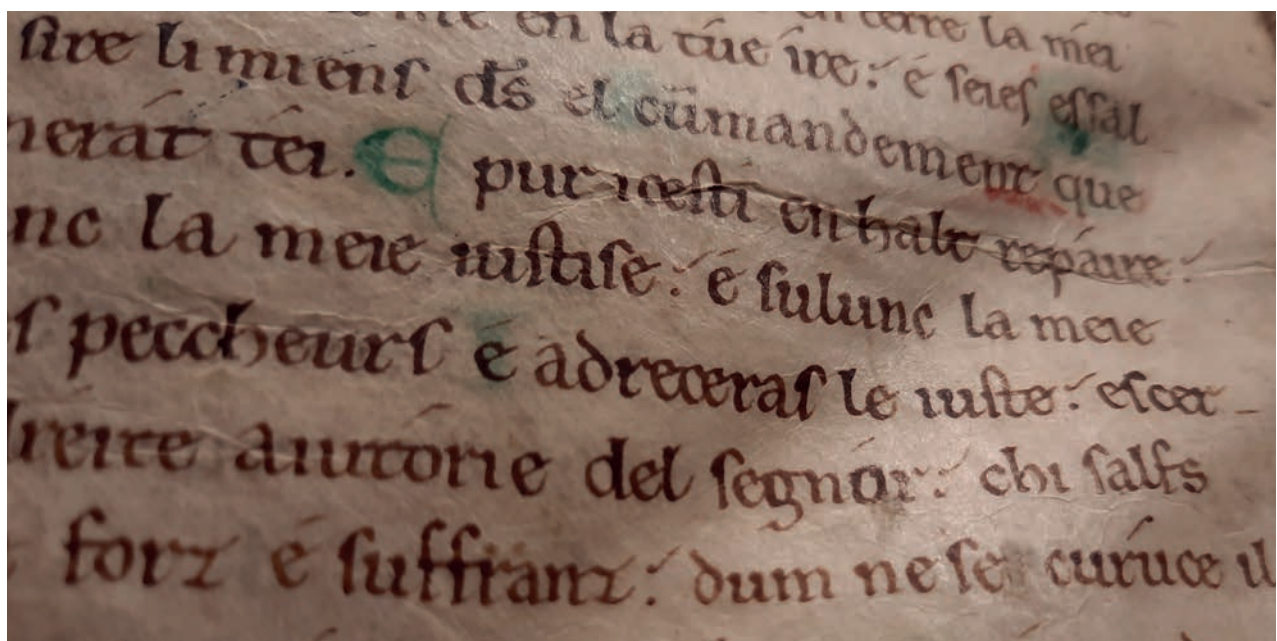 en la túe ire: é seies essal
sire li miens ds̃ el cumandement que
nerát téi. E pur icesti en halt repáire:
nc la meie iustise: é sulunc la meie
s peccheurs é adreceras le iuste: escer
dreite aiutórie del segnór: chi salfs
forz é suffranz: dum ne se curuce il